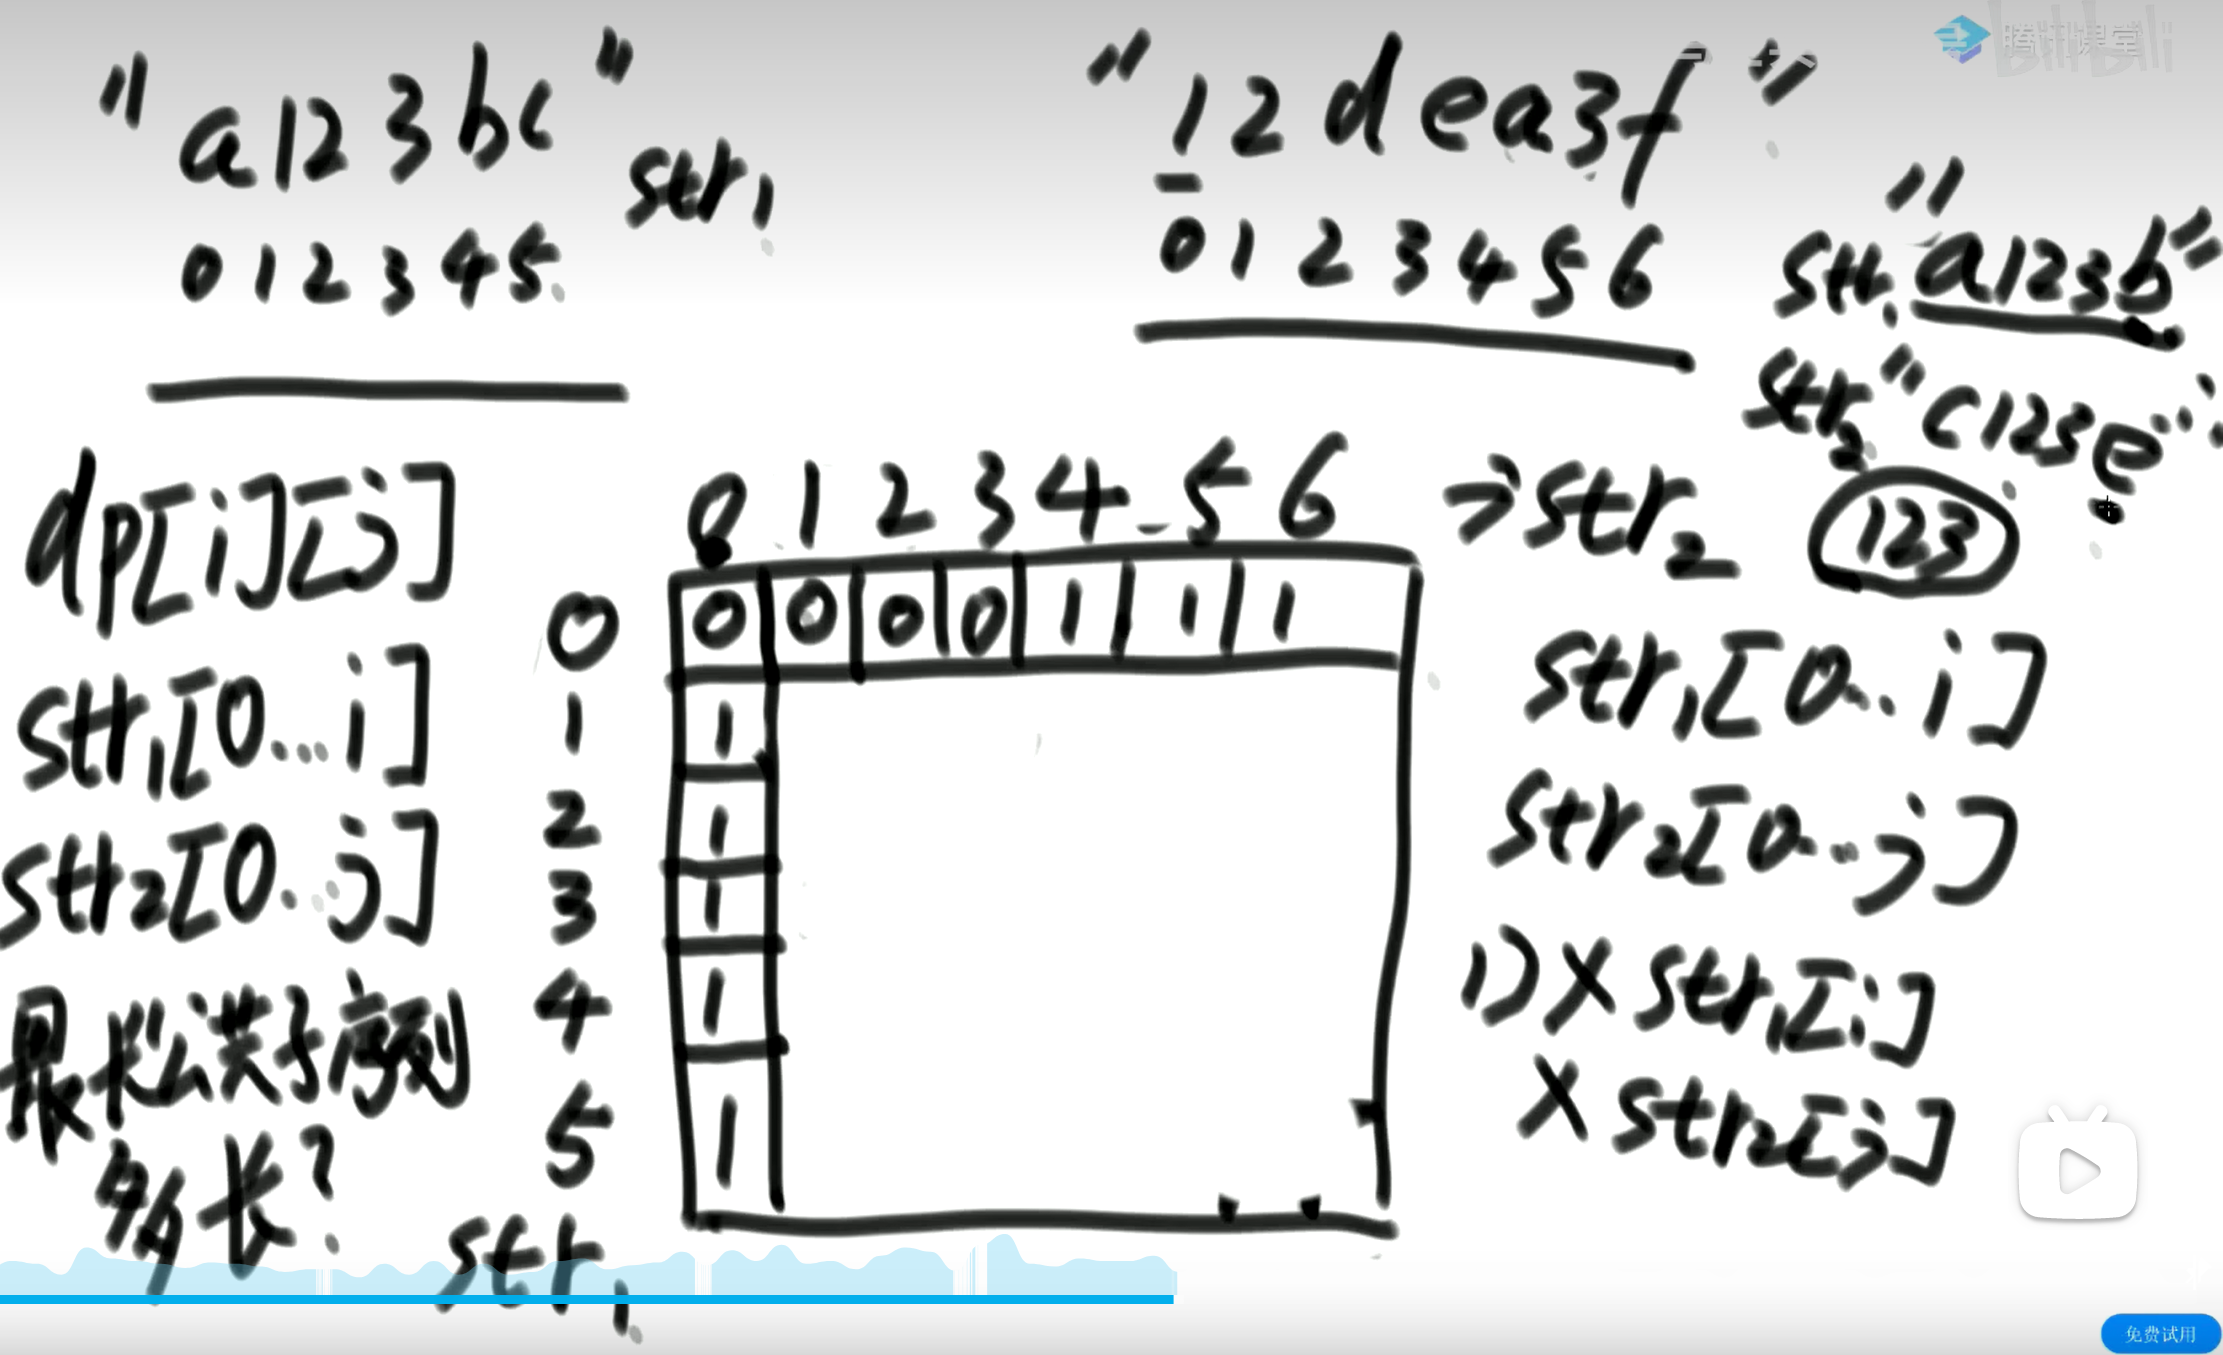 "a123bc" str1
012345
"12dea3f"
0123456
str1 "a123b"
str2 "c123e"
123
dp[i][j]
str1[0...i]
str2[0..j]
最长公共子序列
多长?
0 1 2 3 4 5 6 →str2
0 0 0 0 0 1 1 1
1 1
2 1
3 1
4 1
5 1
str1
str1[0...i]
str2[0...j]
1) X str1[i]
X str2[j]
腾讯课堂
bilibili
免费试用